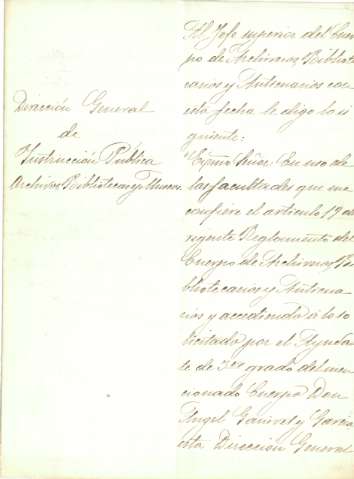 Dirección General
de
Instrucción Pública
Archivos Bibliotecas y Museos
Al Jefe superior del Cuer
po de Archiveros, Bibliote
carios y Anticuarios con
esta fecha le digo lo si
guiente:
"Excmo Señor: En uso de
las facultades que me
confiere el artículo 19 del
vigente Reglamento del
Cuerpo de Archiveros, Bi
bliotecarios y Anticua
rios y accediendo á lo so
licitado por el Ayudan
te de 3er grado del men
cionado Cuerpo Don
Angel Ganivet y García
esta Dirección General